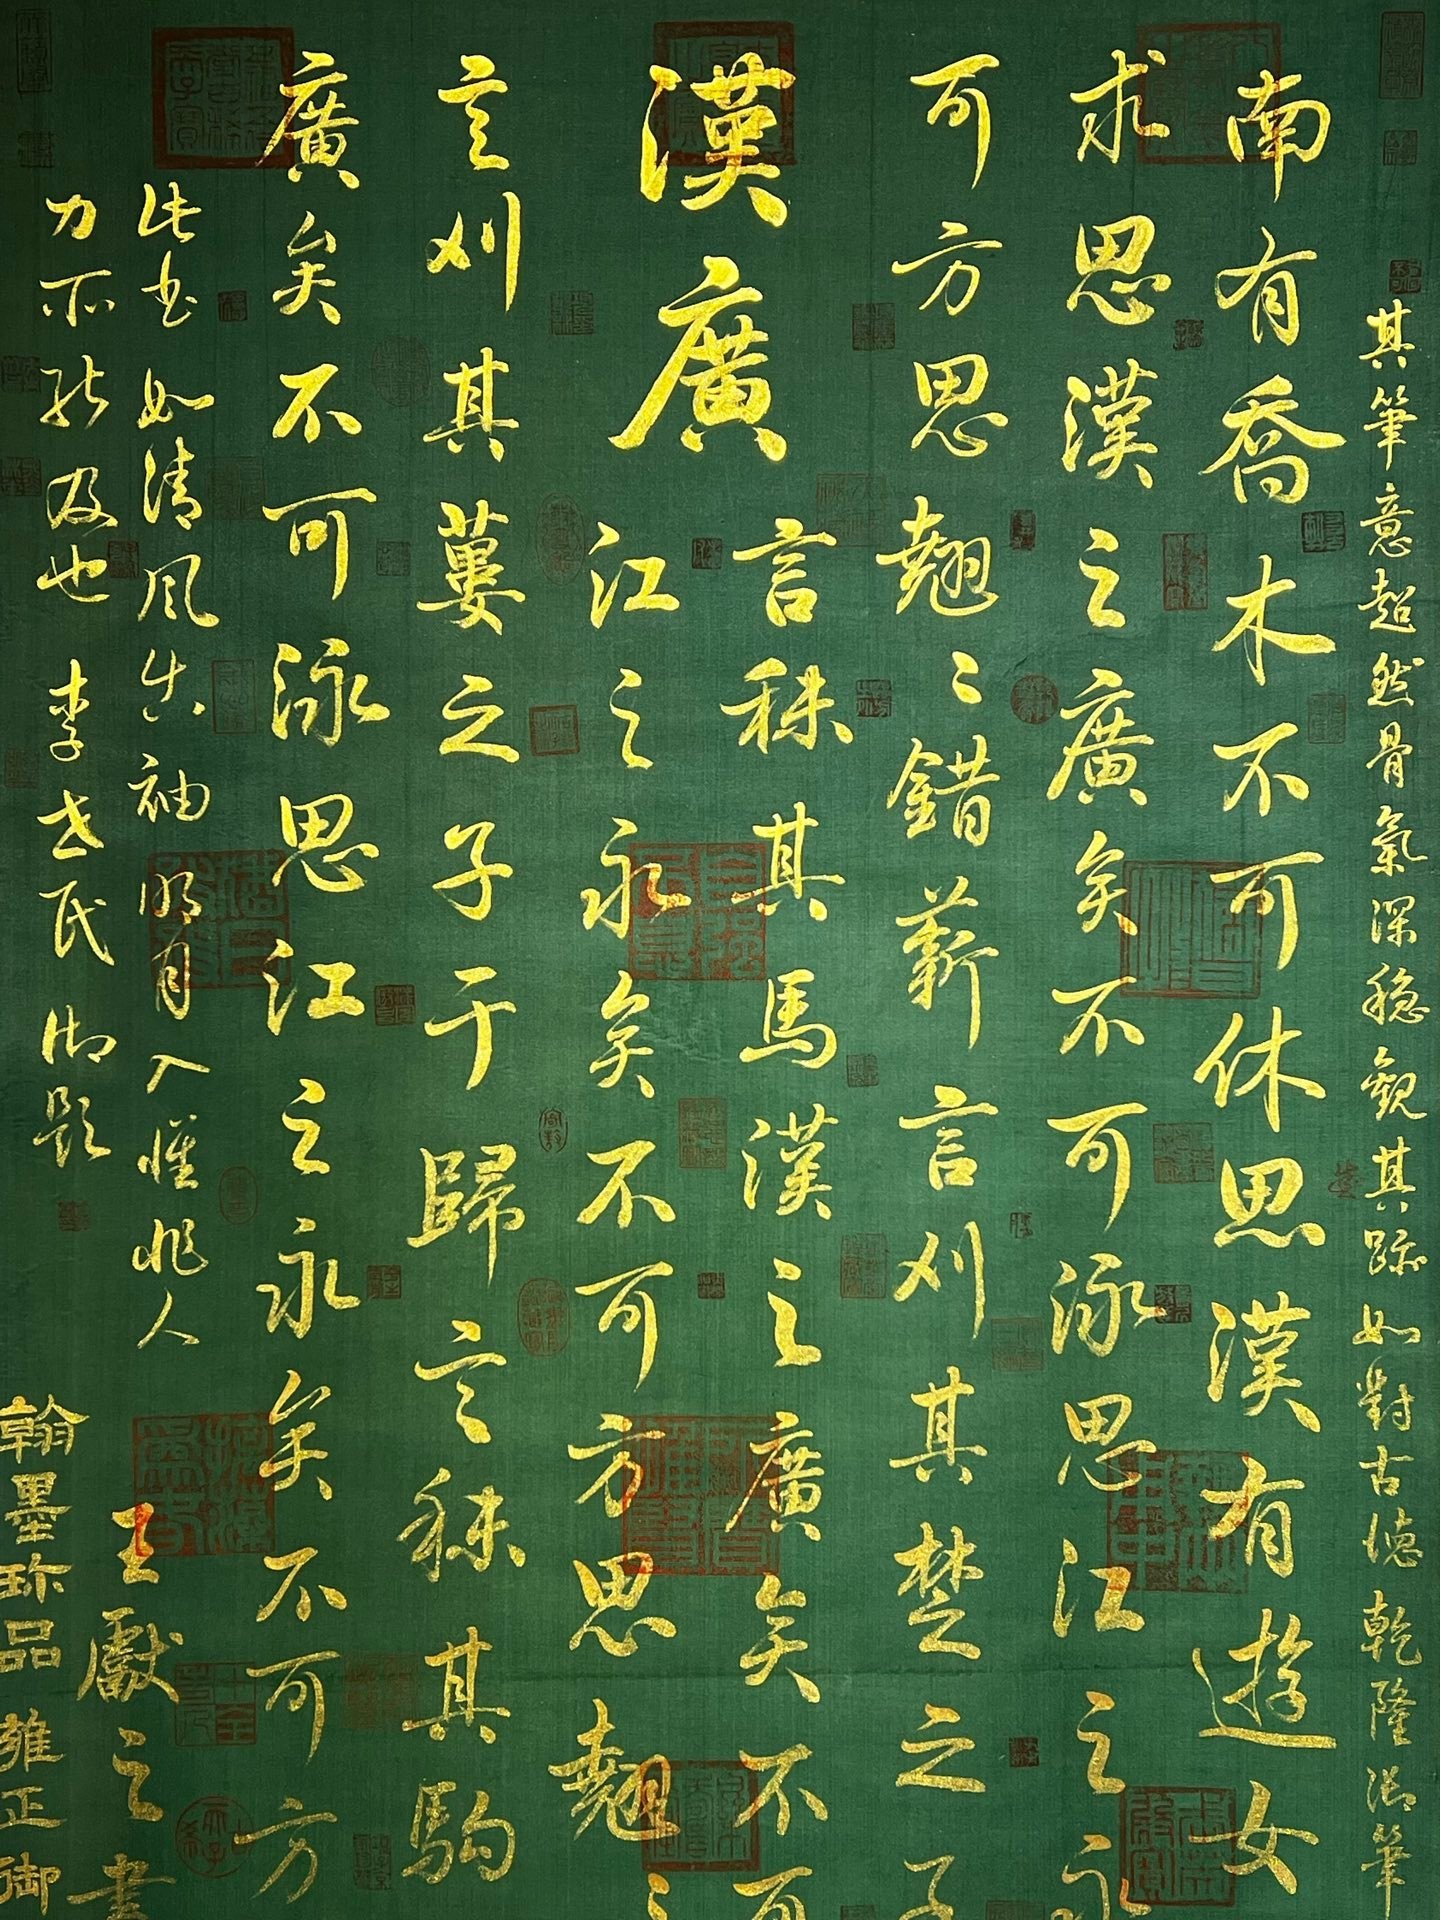 其筆意超然骨氣深穩觀其跡如對古德乾隆御筆
南有喬木不可休思漢有遊女
求思漢之廣矣不可泳思江之永
可方思翹〻錯薪言刈其楚之子
漢廣
言秣其馬漢之廣矣不可
江之永矣不可方思翹之
言刈其蔞之子于歸言秣其駒
廣矣不可泳思江之永矣不可方
此書如清風出袖明月入懷非人
力所能及也 李世民御題
王獻之書
翰墨珍品雍正御